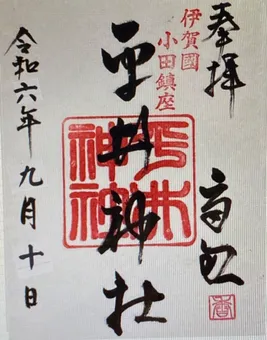 奉拝
伊賀國
小田鎮座
平井神社
平井
神社
令和六年九月十日